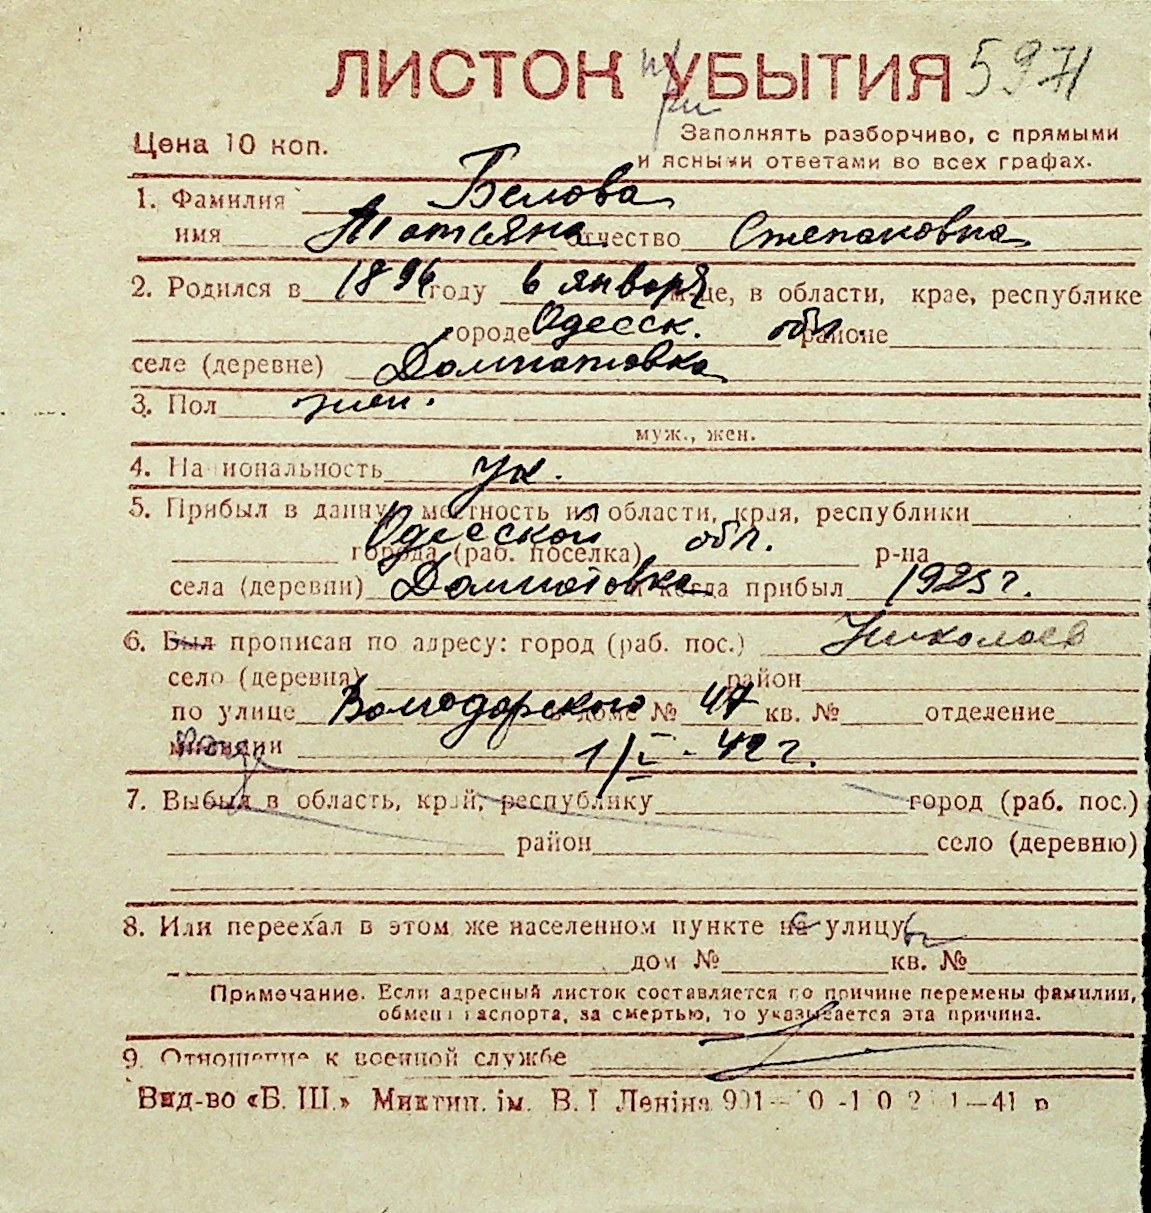 ЛИСТОК УБЫТИЯ 5971
Цена 10 коп.
Заполнять разборчиво, с прямыми
и ясными ответами во всех графах.
1. Фамилия Белова
имя Татьяна отчество Степановна
2. Родился в 1896 году 6 января м-це, в области, крае, республике
городе Одесск. обл. районе
селе (деревне) Доматовка
3. Пол жен.
муж., жен.
4. Национальность ук.
5. Прибыл в данную местность из области, края, республики
Одесской обл.
города (раб. поселка) р-на
села (деревни) Доматовка и когда прибыл 1925 г.
6. Был прописан по адресу: город (раб. пос.) Николаев
село (деревня) район
по улице Володарского в доме № 47 кв. № отделение
милиции 1/I-42 г.
7. Выбыл в область, край, республику город (раб. пос.)
район село (деревню)
8. Или переехал в этом же населенном пункте на улицу
дом № кв. №
Примечание. Если адресный листок составляется по причине перемены фамилии,
обмена паспорта, за смертью, то указывается эта причина.
9. Отношение к военной службе
Вид-во «Б. Ш.» Миктип. ім. В. І Леніна